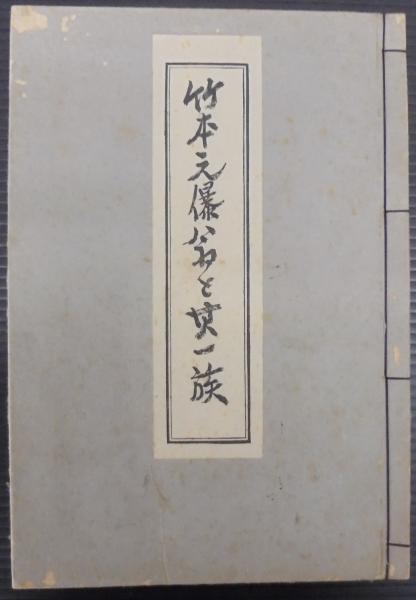 竹本元儤翁と其一族